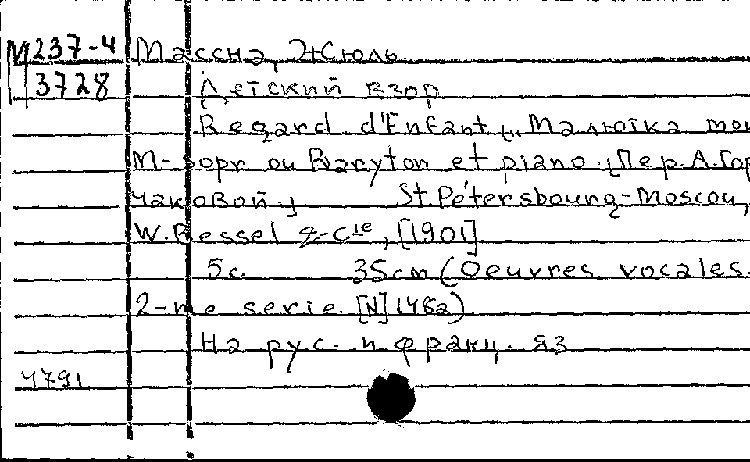 М237-4 Массна, Жюль
3728 Детский взор
Regard d'Enfant „Малютка моя
М-sopr ou Baryton et piano. Пер. А. Гор
чаковой" St Pétersbourg-Moscou,
W. Bessel & Cie, [1901]
5с. 35cm (Oeuvres vocales.
2-me serie. [N] 1482)
На рус. и франц. яз
4791